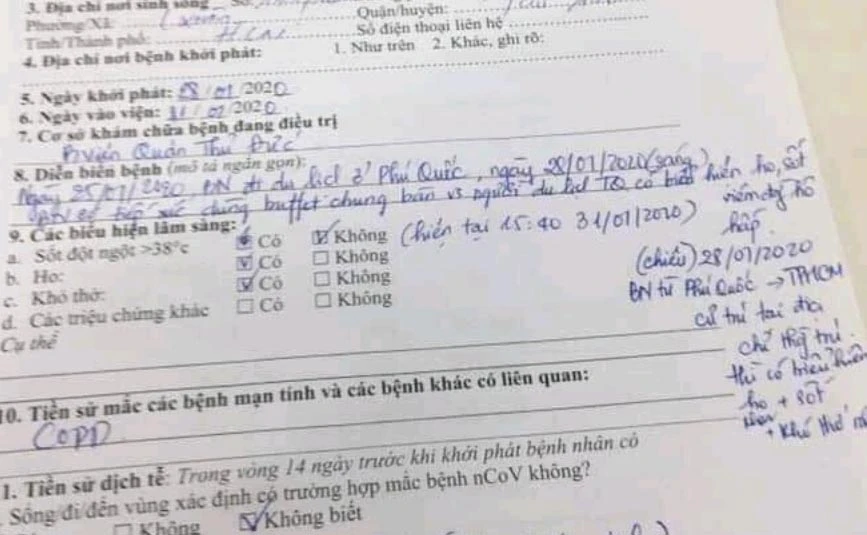 3. Địa chỉ nơi sinh sống
Phường/Xã: Quận/huyện:
Tỉnh/Thành phố: HCM Số điện thoại liên hệ
4. Địa chỉ nơi bệnh khởi phát: 1. Như trên 2. Khác, ghi rõ:
5. Ngày khởi phát: 28/01/2020
6. Ngày vào viện: 31/01/2020
7. Cơ sở khám chữa bệnh đang điều trị
Bviện Quận Thủ Đức
8. Diễn biến bệnh (mô tả ngắn gọn):
Ngày 25/01/2020 BN đi du lịch ở Phú Quốc, ngày 28/01/2020 (sáng)
BN có tiếp xúc chung buffet chung bàn vs người du lịch TQ có biểu hiện ho, sốt
viêm đg hô hấp.
9. Các biểu hiện lâm sàng: (hiện tại 15:40 31/01/2020)
a. Sốt đột ngột >38°c Có Không
b. Ho: Có Không
c. Khó thở: Có Không
d. Các triệu chứng khác Có Không
Cụ thể
(chiều) 28/01/2020
BN từ Phú Quốc → TPHCM
cư trú tại địa
chỉ thg trú.
thì có biểu hiện
ho + sốt
+ khó thở
10. Tiền sử mắc các bệnh mạn tính và các bệnh khác có liên quan:
COPD
1. Tiền sử dịch tễ: Trong vòng 14 ngày trước khi khởi phát bệnh nhân có
Sống/đi/đến vùng xác định có trường hợp mắc bệnh nCoV không?
Không Không biết